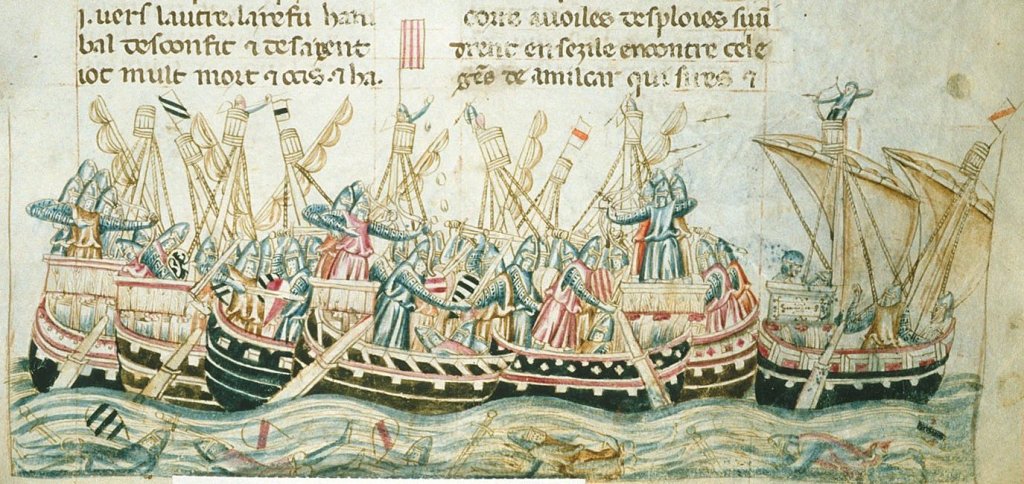 j. uers lautre. la refu hani
bal desconfit ⁊ de sa gent
iot mult mort ⁊ ocis. ⁊ ha.
corre a uoiles desploies
drent en sezile encontre cele
gēs de amilcar qui ⁊